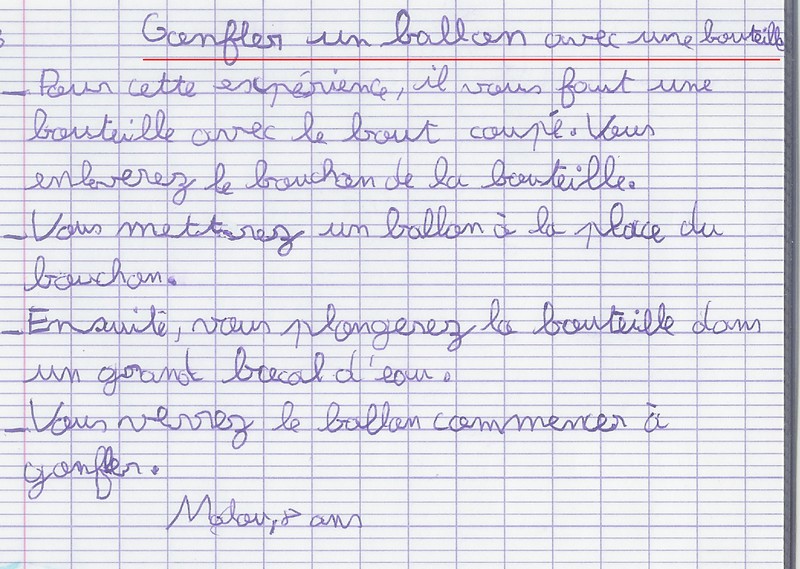 Gonfler un ballon avec une bouteille
- Pour cette expérience, il vous faut une
bouteille avec le bout coupé. Vous
enleverez le bouchon de la bouteille.
- Vous metterez un ballon à la place du
bouchon.
- Ensuite, vous plongerez la bouteille dans
un grand bocal d'eau.
- Vous verrez le ballon commencer à
gonfler.
8 ans